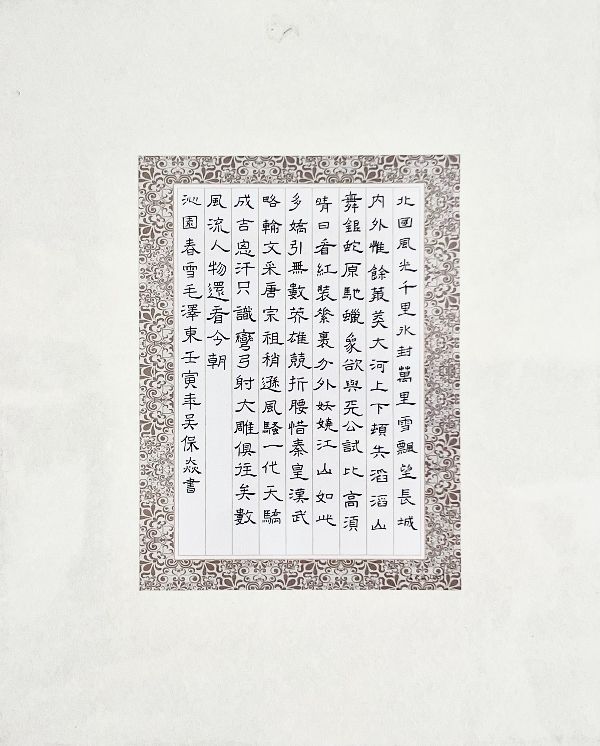 北國風光千里氷封萬里雪飄望長城
内外惟餘莽莽大河上下頓失滔滔山
舞銀蛇原馳蠟象欲與天公試比高須
晴日看紅裝素裹分外妖嬈江山如此
多嬌引無數英雄競折腰惜秦皇漢武
略輸文采唐宗祖稍遜風騷一代天驕
成吉思汗只識彎弓射大雕俱往矣數
風流人物還看今朝
沁園春雪毛澤東壬寅年吳保焱書